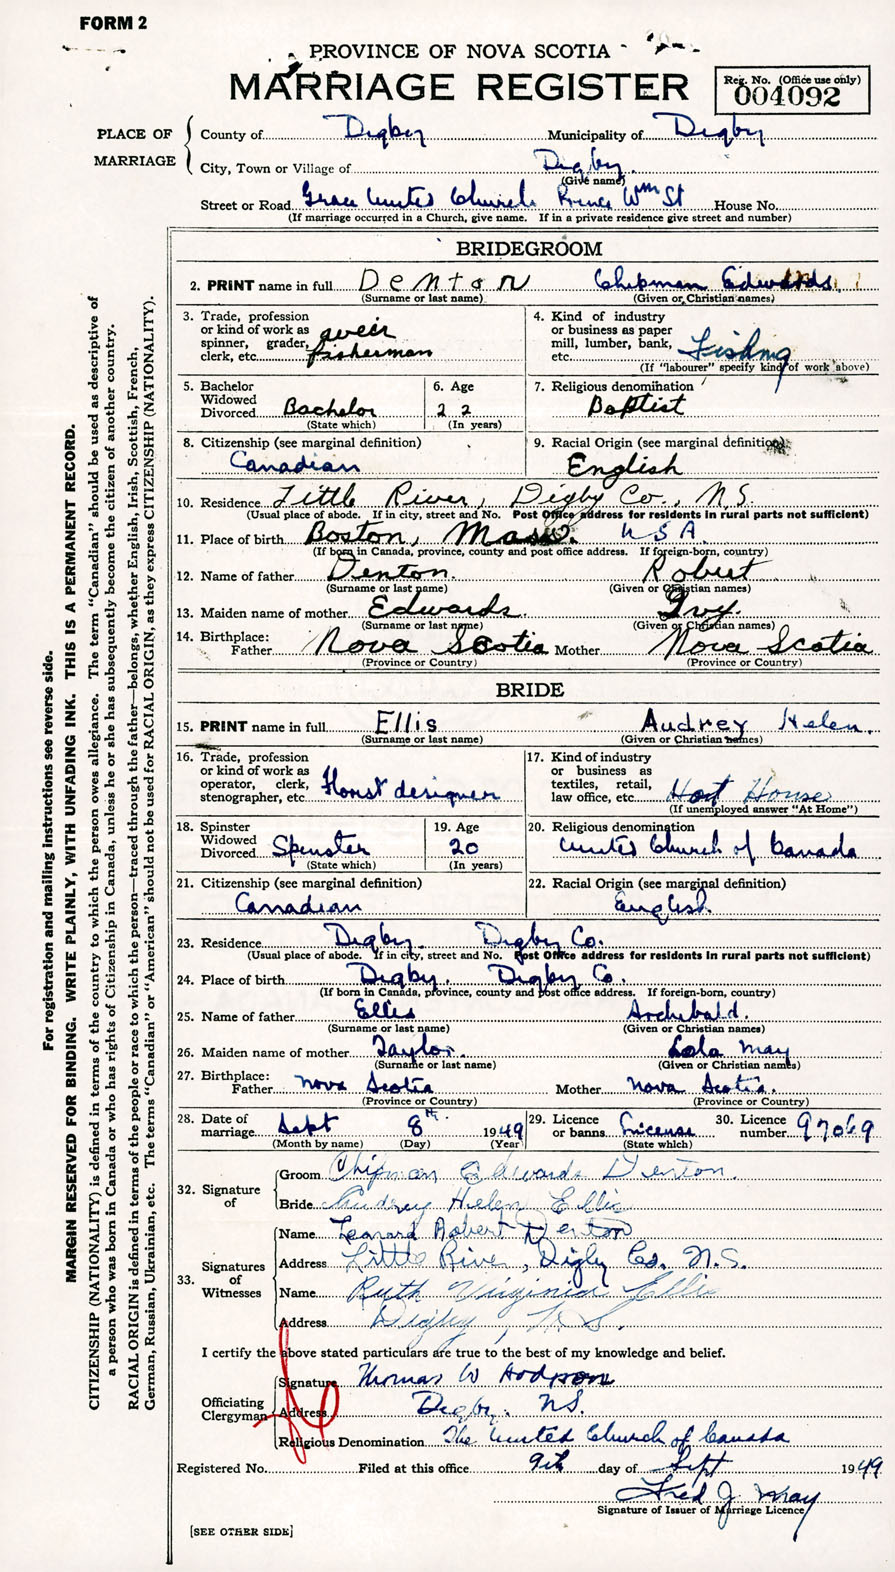 FORM 2
PROVINCE OF NOVA SCOTIA
MARRIAGE REGISTER
Reg. No. (Office use only)
004092
PLACE OF MARRIAGE
County of Digby Municipality of Digby
City, Town or Village of Digby.
(Give name)
Street or Road Grace United Church Prince Wm St House No.
(If marriage occurred in a Church, give name. If in a private residence give street and number)
BRIDEGROOM
2. PRINT name in full Denton Chipman Edwards.
(Surname or last name) (Given or Christian names)
3. Trade, profession or kind of work as spinner, grader, clerk, etc. weir fisherman
4. Kind of industry or business as paper mill, lumber, bank, etc. Fishing
(If "labourer" specify kind of work above)
5. Bachelor Widowed Divorced Bachelor
(State which)
6. Age 22
(In years)
7. Religious denomination
Baptist
8. Citizenship (see marginal definition)
Canadian
9. Racial Origin (see marginal definition)
English
10. Residence Little River, Digby Co., N.S.
(Usual place of abode. If in city, street and No. Post Office address for residents in rural parts not sufficient)
11. Place of birth Boston, Mass. USA.
(If born in Canada, province, county and post office address. If foreign-born, country)
12. Name of father Denton. Robert
(Surname or last name) (Given or Christian names)
13. Maiden name of mother Edwards. Ivy.
(Surname or last name) (Given or Christian names)
14. Birthplace:
Father Nova Scotia Mother Nova Scotia
(Province or Country) (Province or Country)
BRIDE
15. PRINT name in full Ellis Audrey Helen.
(Surname or last name) (Given or Christian names)
16. Trade, profession or kind of work as operator, clerk, stenographer, etc. Florist designer
17. Kind of industry or business as textiles, retail, law office, etc. Hot House
(If unemployed answer "At Home")
18. Spinster Widowed Divorced Spinster
(State which)
19. Age 20
(In years)
20. Religious denomination
United Church of Canada
21. Citizenship (see marginal definition)
Canadian
22. Racial Origin (see marginal definition)
English.
23. Residence Digby. Digby Co.
(Usual place of abode. If in city, street and No. Post Office address for residents in rural parts not sufficient)
24. Place of birth Digby. Digby Co.
(If born in Canada, province, county and post office address. If foreign-born, country)
25. Name of father Ellis Archibald.
(Surname or last name) (Given or Christian names)
26. Maiden name of mother Taylor. Lola May
(Surname or last name) (Given or Christian names)
27. Birthplace:
Father Nova Scotia Mother Nova Scotia.
(Province or Country) (Province or Country)
28. Date of marriage Sept 8th 1949
(Month by name) (Day) (Year)
29. Licence or banns License
(State which)
30. Licence number 97069
32. Signature of
Groom Chipman Edwards Denton.
Bride Audrey Helen Ellis
33. Signatures of Witnesses
Name Leonard Robert Denton
Address Little River, Digby Co. N.S.
Name Ruth Virginia Ellis
Address Digby, N.S.
I certify the above stated particulars are true to the best of my knowledge and belief.
Officiating Clergyman
Signature Thomas W Hodgson
Address Digby. NS.
Religious Denomination The United Church of Canada
Registered No. Filed at this office 9th day of Sept 1949
Fred J. May
Signature of Issuer of Marriage Licence
[SEE OTHER SIDE]
For registration and mailing instructions see reverse side.
MARGIN RESERVED FOR BINDING. WRITE PLAINLY, WITH UNFADING INK. THIS IS A PERMANENT RECORD.
CITIZENSHIP (NATIONALITY) is defined in terms of the country to which the person owes allegiance. The term "Canadian" should be used as descriptive of
a person who was born in Canada or who has rights of Citizenship in Canada, unless he or she has subsequently become the citizen of another country.
RACIAL ORIGIN is defined in terms of the people or race to which the person—traced through the father—belongs, whether English, Irish, Scottish, French,
German, Russian, Ukrainian, etc. The terms "Canadian" or "American" should not be used for RACIAL ORIGIN, as they express CITIZENSHIP (NATIONALITY).